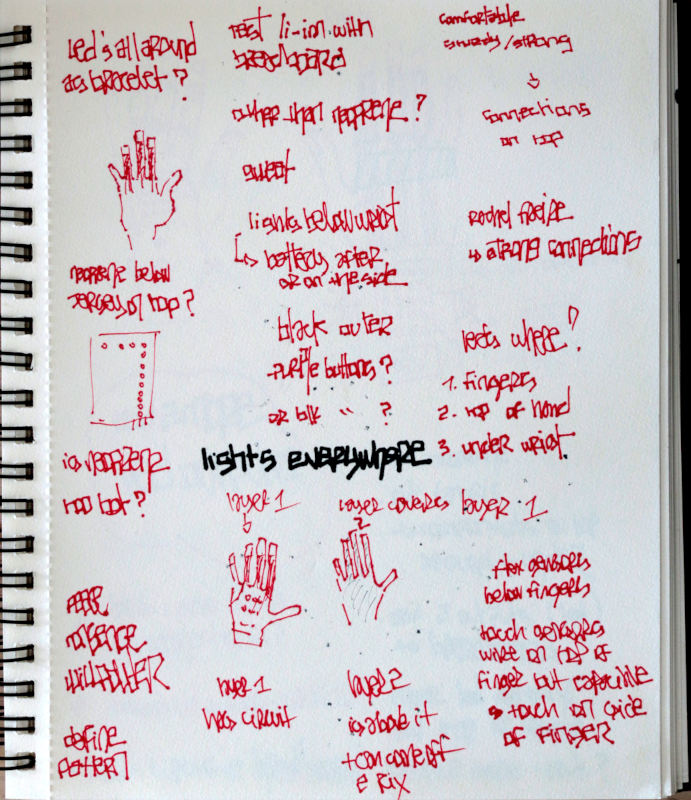 Led's all around
as bracelet?
neoprene below
Jersey on top?
is neoprene
too hot?
define
pattern
test li-ion with
breadboard
other than neoprene?
sweat
lights below wrist
↳ battery after
or on the side
black outer
purple buttons?
or blk " ?
lights everywhere
comfortable
sturdy/strong
↓
connections
on top
↳ strong connections
leds where?
1. fingers
2. top of hand
3. under wrist
layer 1
layer 1
has circuit
layer covers layer 1
2
layer 2
is above it
flex sensors
below fingers
touch sensors
wire on top of
finger but capacitive
touch on side
of finger